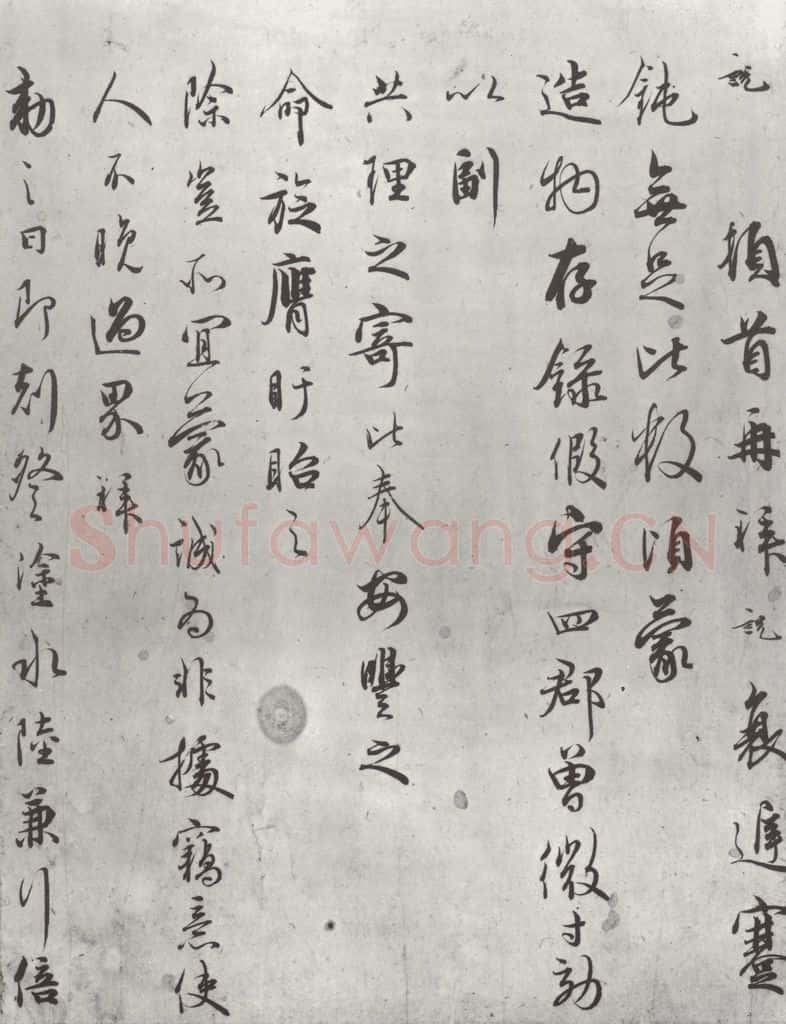 說 頓首再拜說衰遲蹇
鈍無足比數頃蒙
造物存錄假守四郡曾微寸効
以副
共理之寄比奉安豐之
命旋膺盱眙之
除豈所宜蒙誠為非據竊意使
人不晚過界拜
勅之日即刻登塗水陸兼行倍
Shufawang.CN